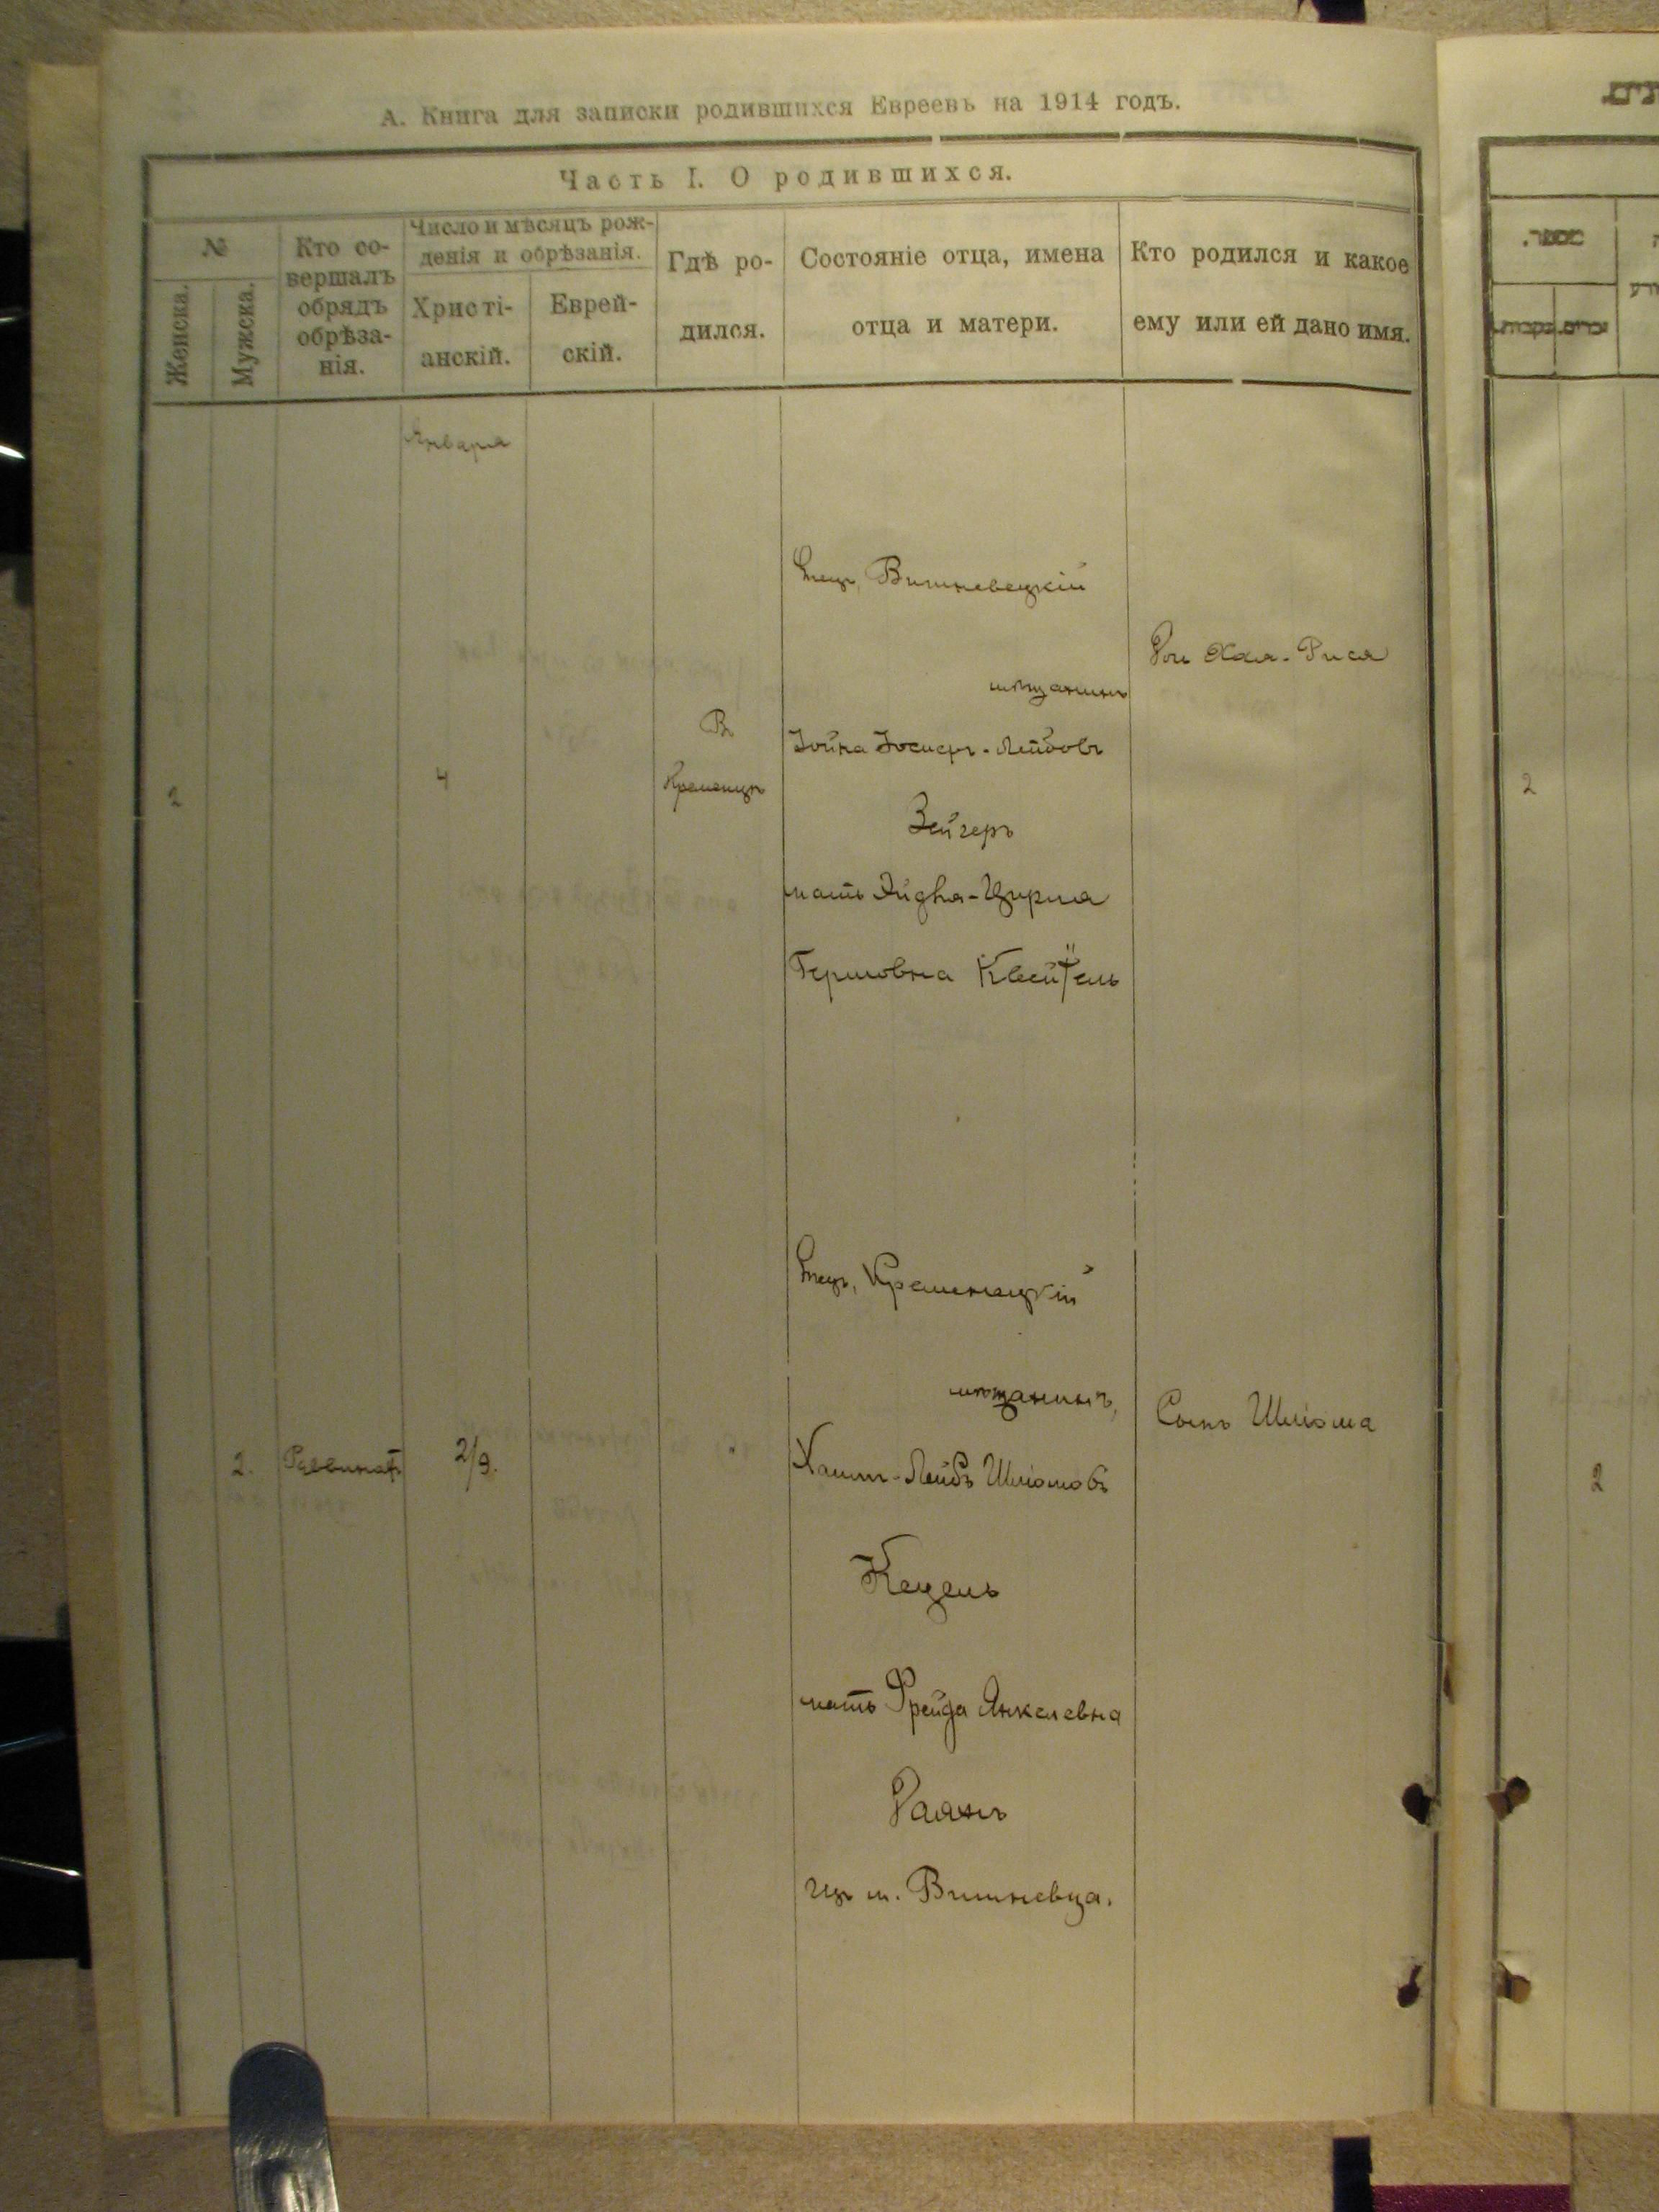 А. Книга для записки родившихся Евреевъ на 1914 годъ.
Часть I. О родившихся.
№
Женска.
Мужска.
Кто со-
вершалъ
обрядъ
обрѣза-
нія.
Число и мѣсяцъ рож-
денія и обрѣзанія.
Христі-
анскій.
Еврей-
скій.
Гдѣ ро-
дился.
Состояніе отца, имена
отца и матери.
Кто родился и какое
ему или ей дано имя.
Января
2
4
Въ
Кременцѣ
Отецъ, Вишневецкій
мѣщанинъ
Іойна Іосифъ-Лейбовъ
Зейгеръ
мать Эйдня-Цирля
Гершовна
Хая-Рися
2
2.
Раввинатъ
2/9.
Отецъ, Кременецкій
мѣщанинъ,
Хаимъ-Лейбъ Шліомовъ
Кецель
мать Фрейда Янкелевна
изъ м. Вишневца.
Сынъ Шліома
2